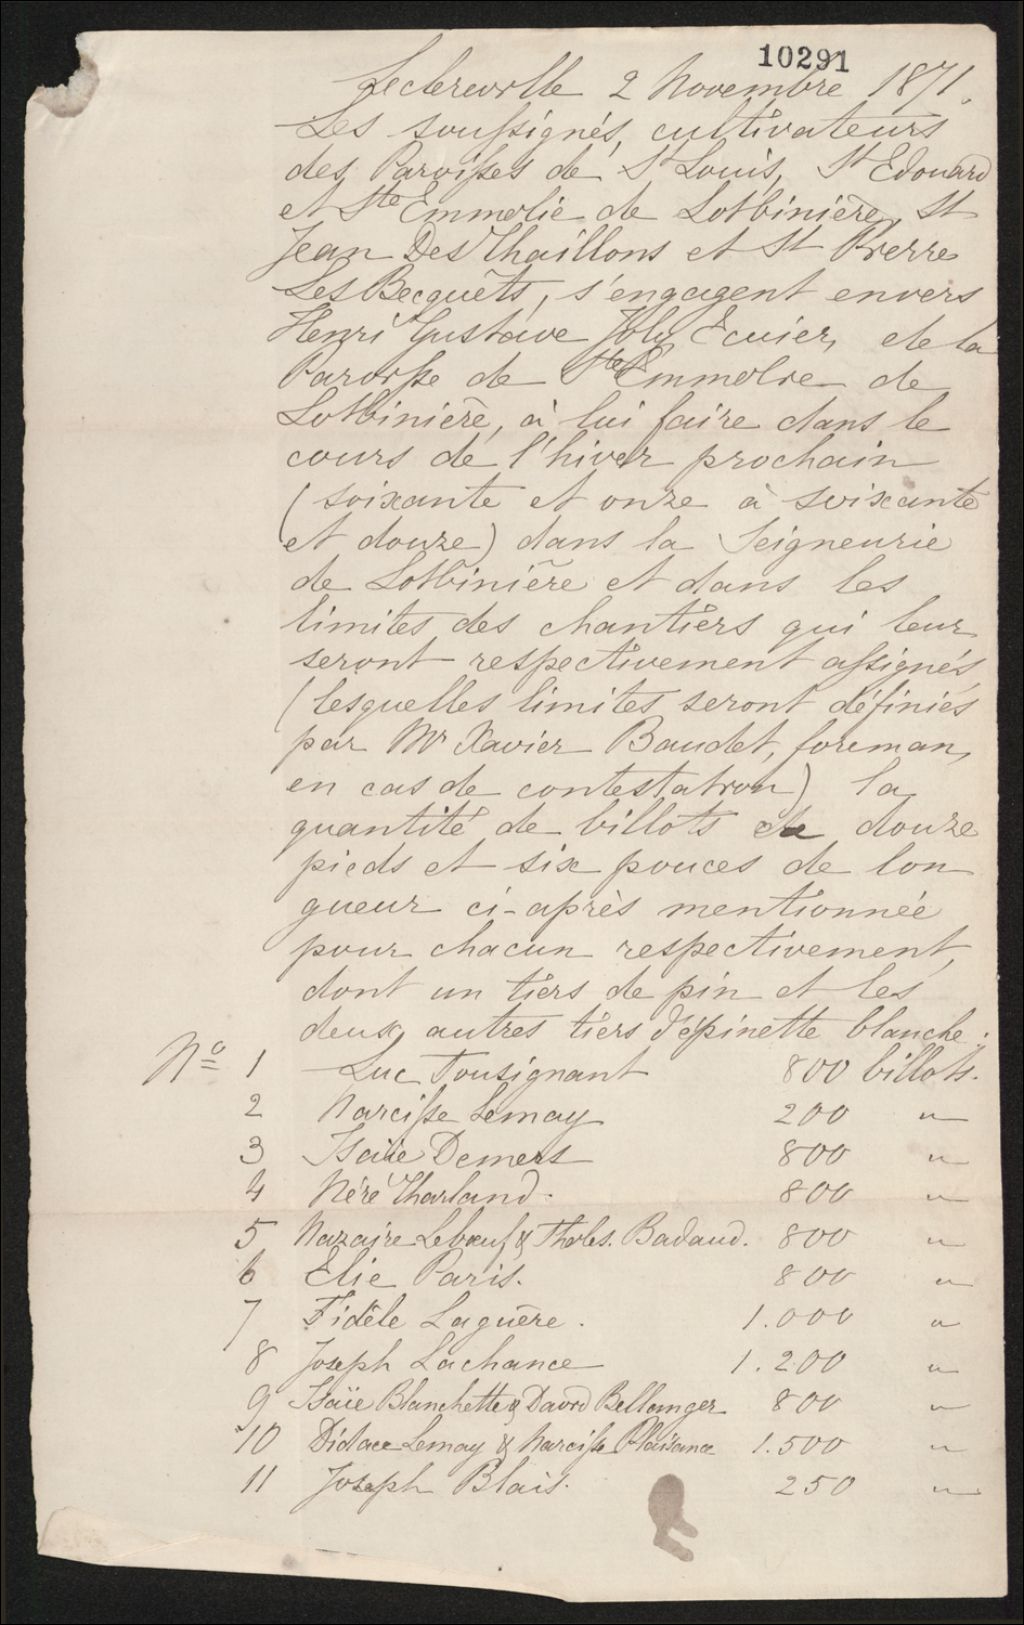 10291
Leclercville 2 Novembre 1871.
Les soussignés, cultivateurs
des Paroisses de St Louis, St Edouard
et Ste Emmelie de Lotbinière, St
Jean Des Chaillons et St Pierre
Les Becquets, s'engagent envers
Henri Gustave Joly Ecuier, de la
Paroisse de Ste Emmelie de
Lotbinière, à lui faire dans le
cours de l'hiver prochain
(soixante et onze à soixante
et douze) dans la Seigneurie
de Lotbinière et dans les
limites des chantiers qui leur
seront respectivement assignés
(lesquelles limites seront définies
par Mr Xavier Baudet, foreman,
en cas de contestation) la
quantité de billots de douze
pieds et six pouces de lon
gueur ci-après mentionnée
pour chacun respectivement,
dont un tiers de pin et les
deux autres tiers d'épinette blanche.
No 1 Luc Tousignant 800 billots.
2 Narcisse Lemay 200 "
3 Isaïe Demers 800 "
4 Néré Charland. 800 "
5 Nazaire Lebœuf & Tholes. Badaud. 800 "
6 Elie Paris. 800 "
7 Fidèle Laguère. 1.000 "
8 Joseph Lachance 1.200 "
9 Isaïe Blanchette & David Bellanger 800 "
10 Didace Lemay & Narcisse Plaisance 1.500 "
11 Joseph Blais. 250 "